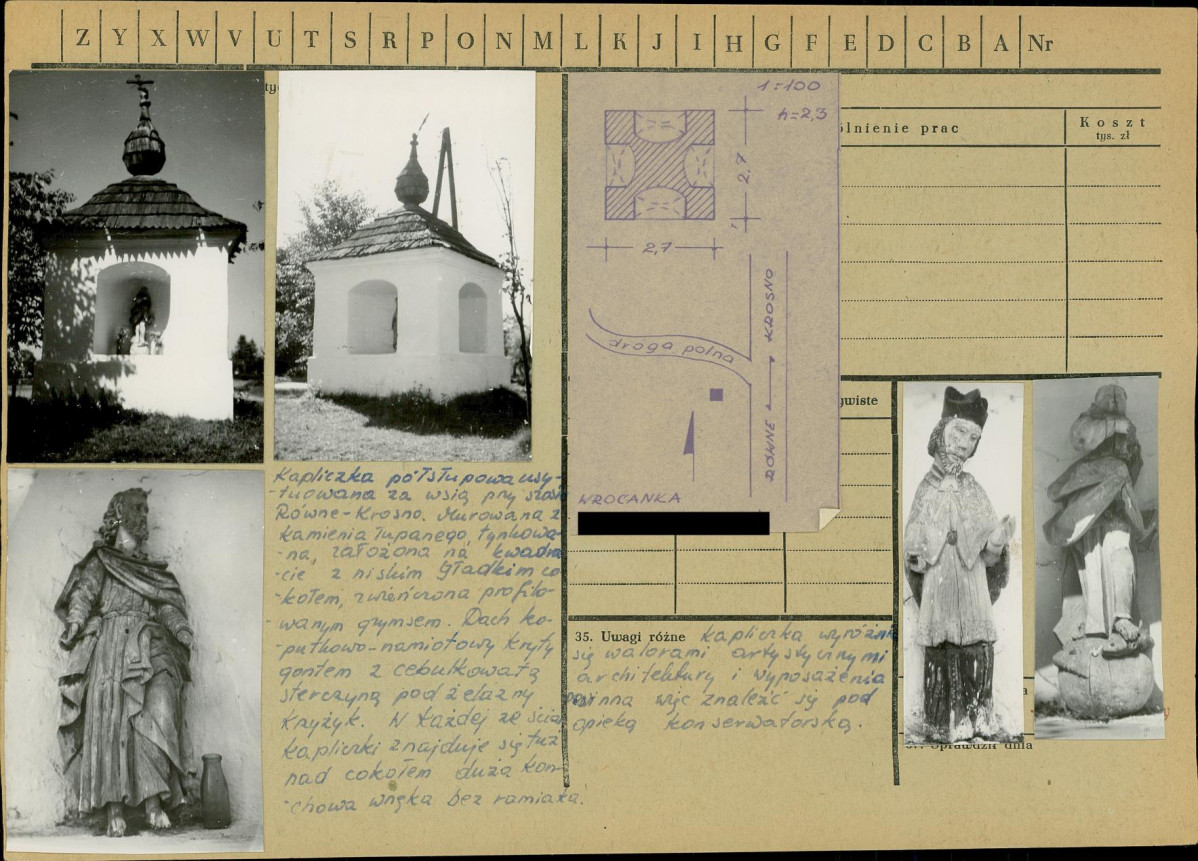 Z Y X W V U T S R P O N M L K J I H G F E D C B A Nr
ty
1:100
h=2,3
2,7
2,7
droga polna
RÓWNE
KROSNO
WROCANKA
ólnienie prac
Koszt
tys. zł
ywiste
Kapliczka półsłupowa usy-
-tuowana za wsią przy szosie
Równe-Krosno. Murowana z
kamienia łupanego, tynkowa-
-na, założona na kwadra
-cie, z niskim gładkim co
-kołem, zwieńczona profilo-
-wanym gzymsem. Dach ko-
-pułkowo-namiotowy kryty
gontem z cebulkowatą
sterczyną pod żelazny
krzyżyk. W każdej ze ścian
kapliczki znajduje się tuż
nad cokołem duża kon-
-chowa wnęka bez ramiaka.
35. Uwagi różne Kapliczka wyróżnia
się walorami artystycznymi
architektury i wyposażenia
powinna więc znaleźć się pod
opieką konserwatorską.
37. Sprawdził dnia